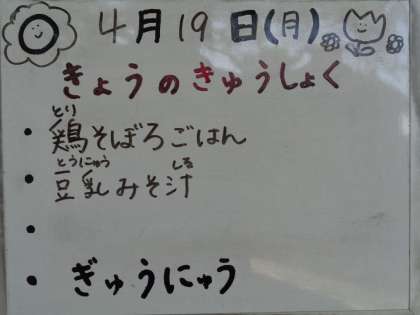 4月19日(月)
きょうのきゅうしょく
とり
・鶏そぼろごはん
とうにゅう しる
・豆乳みそ汁
・
・ぎゅうにゅう